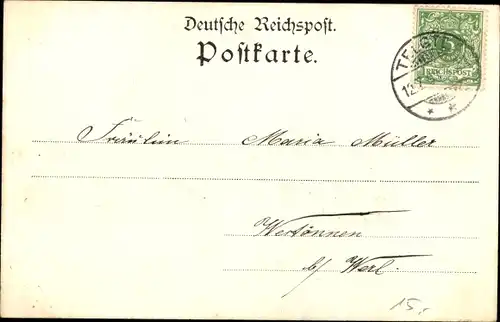 Deutsche Reichspost.
Postkarte.
5
REICHSPOST
TELGTE
12
Fräulein Maria Müller
Wertönnen
b/ Werl.
15.